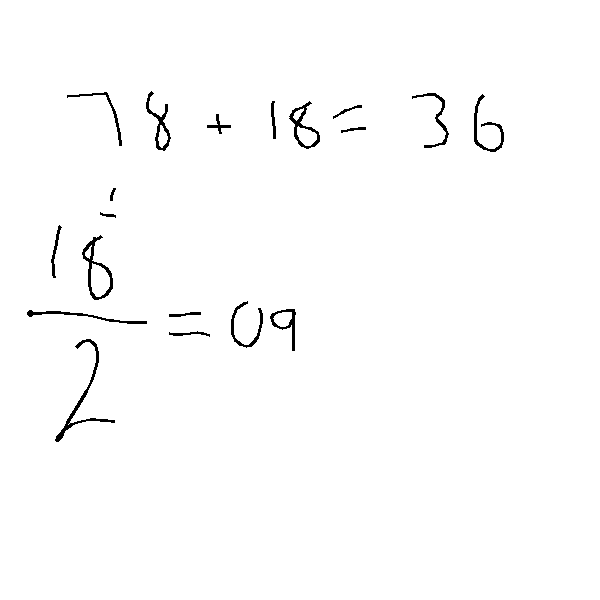 78 + 18 = 36
18
2
= 09